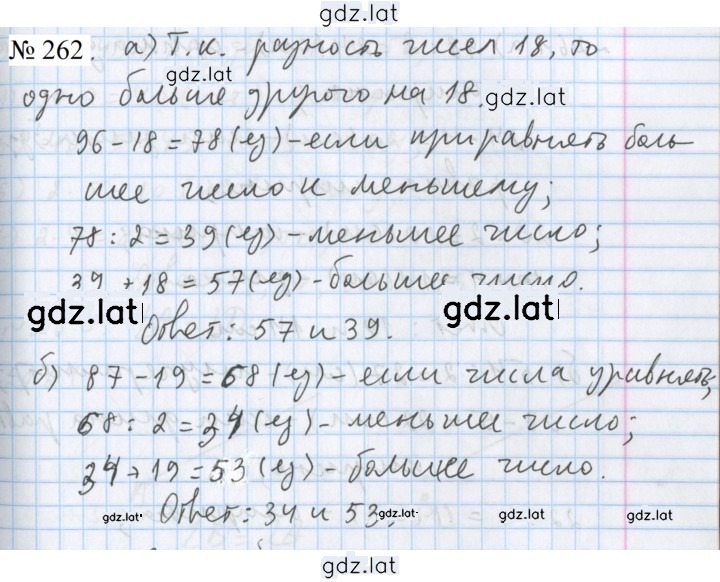 gdz.lat
№ 262. а) Т.к. разность чисел 18, то
gdz.lat
одно больше другого на 18.
gdz.lat
96 - 18 = 78 (ед) - если приравнять боль-
шее число к меньшему;
78 : 2 = 39 (ед) - меньшее число;
39 + 18 = 57 (ед) - большее число.
gdz.lat gdz.lat
Ответ: 57 и 39.
б) 87 - 19 = 68 (ед) - если числа уравнять;
68 : 2 = 34 (ед) - меньшее число;
34 + 19 = 53 (ед) - большее число.
Ответ: 34 и 53.
gdz.lat gdz.lat gdz.lat gdz.lat
gdz.lat